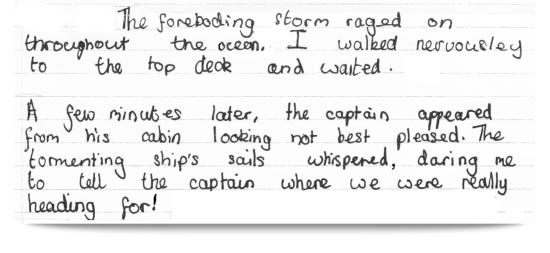 The foreboding storm raged on
throughout the oceen. I walked nervousley
to the top deck and waited.
A few minutes later, the captain appeared
from his cabin looking not best pleased. The
tormenting ship's sails whispered, daring me
to tell the captain where we were really
heading for!